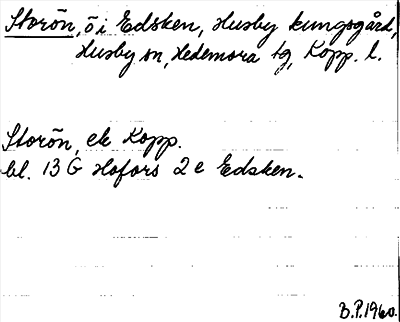 Storön, ö i Edsken, Husby kungsgård,
Husby sn, Hedemora tg, Kopp. l.
Storön, ek Kopp.
bl. 13 G Hofors 2 e Edsken.
B.P. 1960.